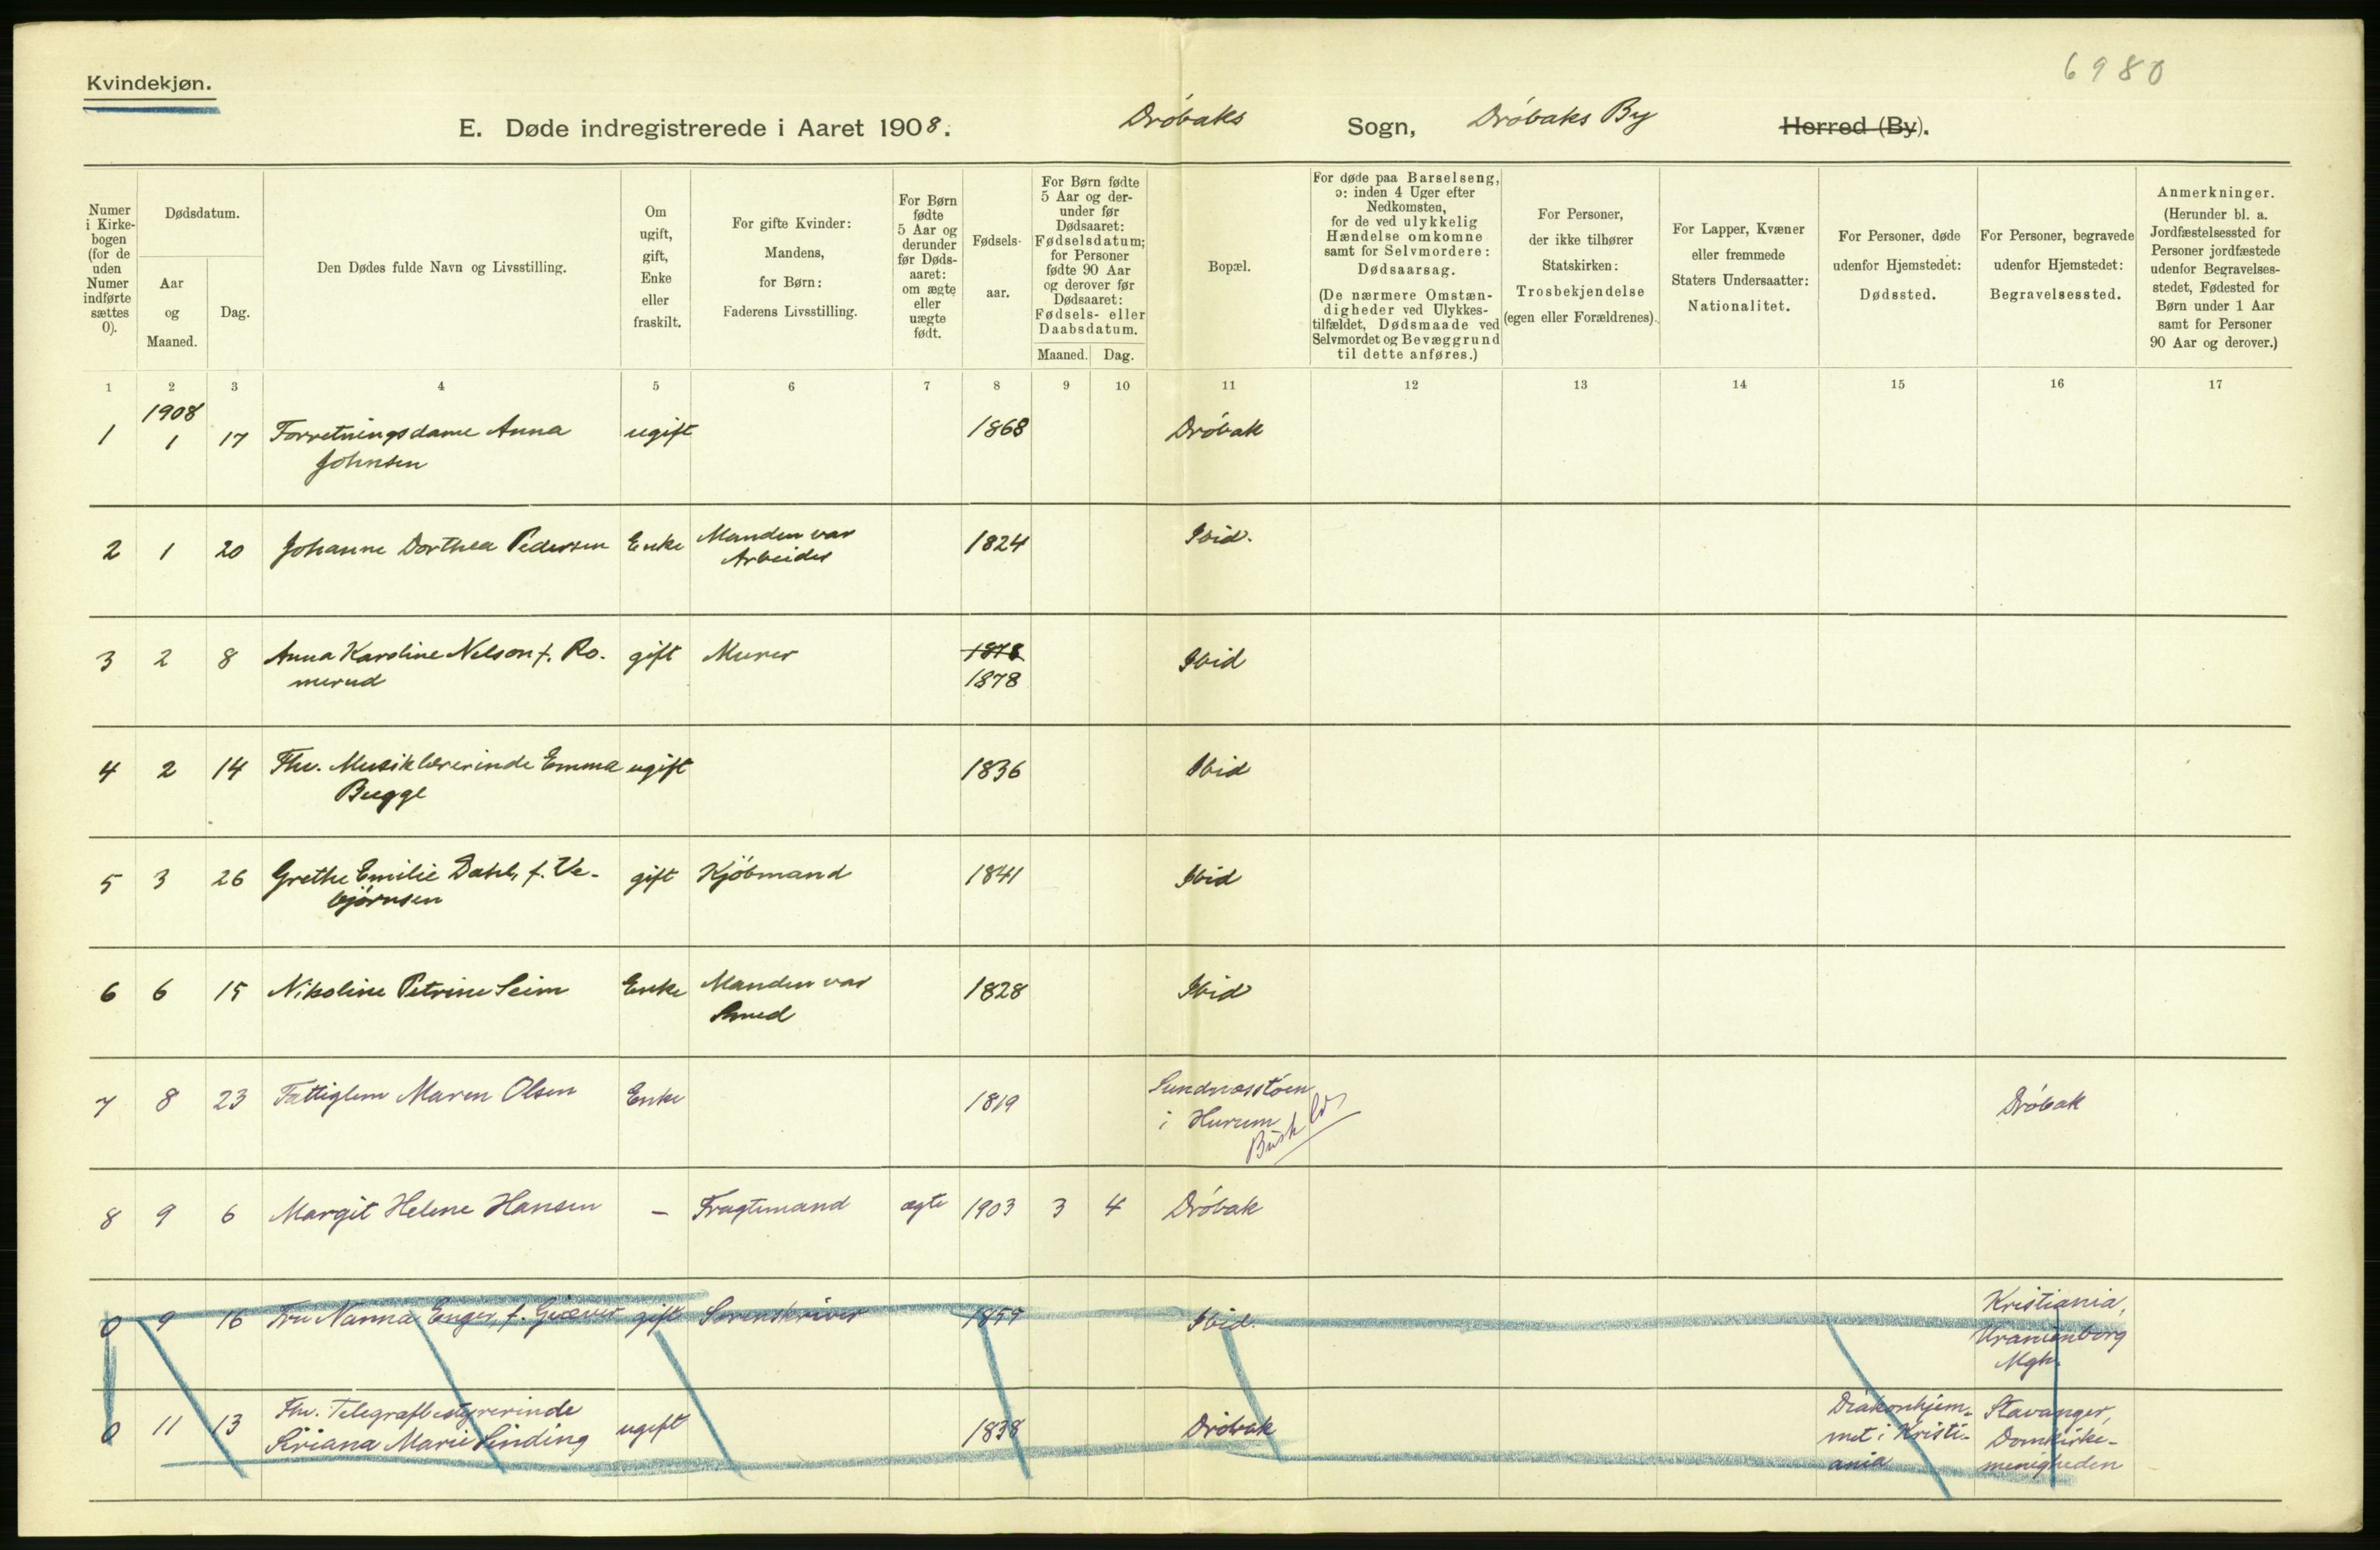 6980
Kvindekjøn.
E. Døde indregistrerede i Aaret 1908. Drøbaks Sogn, Drøbaks By Herred (By).
Numer i Kirkebogen (for de uden Numer indførte sættes 0).
Dødsdatum.
Aar og Maaned.
Dag.
Den Dødes fulde Navn og Livsstilling.
Om ugift, gift, Enke eller fraskilt.
For gifte Kvinder: Mandens, for Børn: Faderens Livsstilling.
For Børn fødte 5 Aar og derunder før Dødsaaret: om ægte eller uægte født.
Fødselsaar.
For Børn fødte 5 Aar og derunder før Dødsaaret: Fødselsdatum; for Personer fødte 90 Aar og derover før Dødsaaret: Fødsels- eller Daabsdatum.
Maaned. Dag.
Bopæl.
For døde paa Barselseng, ɔ: inden 4 Uger efter Nedkomsten, for de ved ulykkelig Hændelse omkomne samt for Selvmordere: Dødsaarsag. (De nærmere Omstændigheder ved Ulykkestilfældet, Dødsmaade ved Selvmordet og Bevæggrund til dette anføres.)
For Personer, der ikke tilhører Statskirken: Trosbekjendelse (egen eller Forældrenes).
For Lapper, Kvæner eller fremmede Staters Undersaatter: Nationalitet.
For Personer, døde udenfor Hjemstedet: Dødssted.
For Personer, begravede udenfor Hjemstedet: Begravelsessted.
Anmerkninger. (Herunder bl. a. Jordfæstelsessted for Personer jordfæstede udenfor Begravelsesstedet, Fødested for Børn under 1 Aar samt for Personer 90 Aar og derover.)
1 2 3 4 5 6 7 8 9 10 11 12 13 14 15 16 17
1908
1 1 17 Forretningsdame Anna ugift 1868 Drøbak
Johnsen
2 1 20 Johanne Dorthea Pedersen Enke Manden var 1824 Ibid.
Arbeider
3 2 8 Anna Karoline Nelson f. Ro- gift Murer 1878 Ibid
merud 1878
4 2 14 Fhv. Musiklærerinde Emma ugift 1836 Ibid
Bugge
5 3 26 Grethe Emilie Dahl, f. Ve- gift Kjøbmand 1841 Ibid
bjørnsen
6 6 15 Nikoline Petrine Seim Enke Manden var 1828 Ibid
Smed
7 8 23 Fattiglem Maren Olsen Enke 1819 Sundnæsstøen Drøbak
i Hurum
8 9 6 Margit Helene Hansen – Fragtemand ægte 1903 3 4 Drøbak
0 9 16 Fru Nanna Enger, f. Giæver gift Sorenskriver Ibid. Kristiania,
Uranienborg
Mgh.
0 11 13 Fhv. Telegrafbestyrerinde ugift 1838 Drøbak Diakonhjem- Stavanger,
Marie Sinding met i Kristi- Domkirke-
ania menigheden